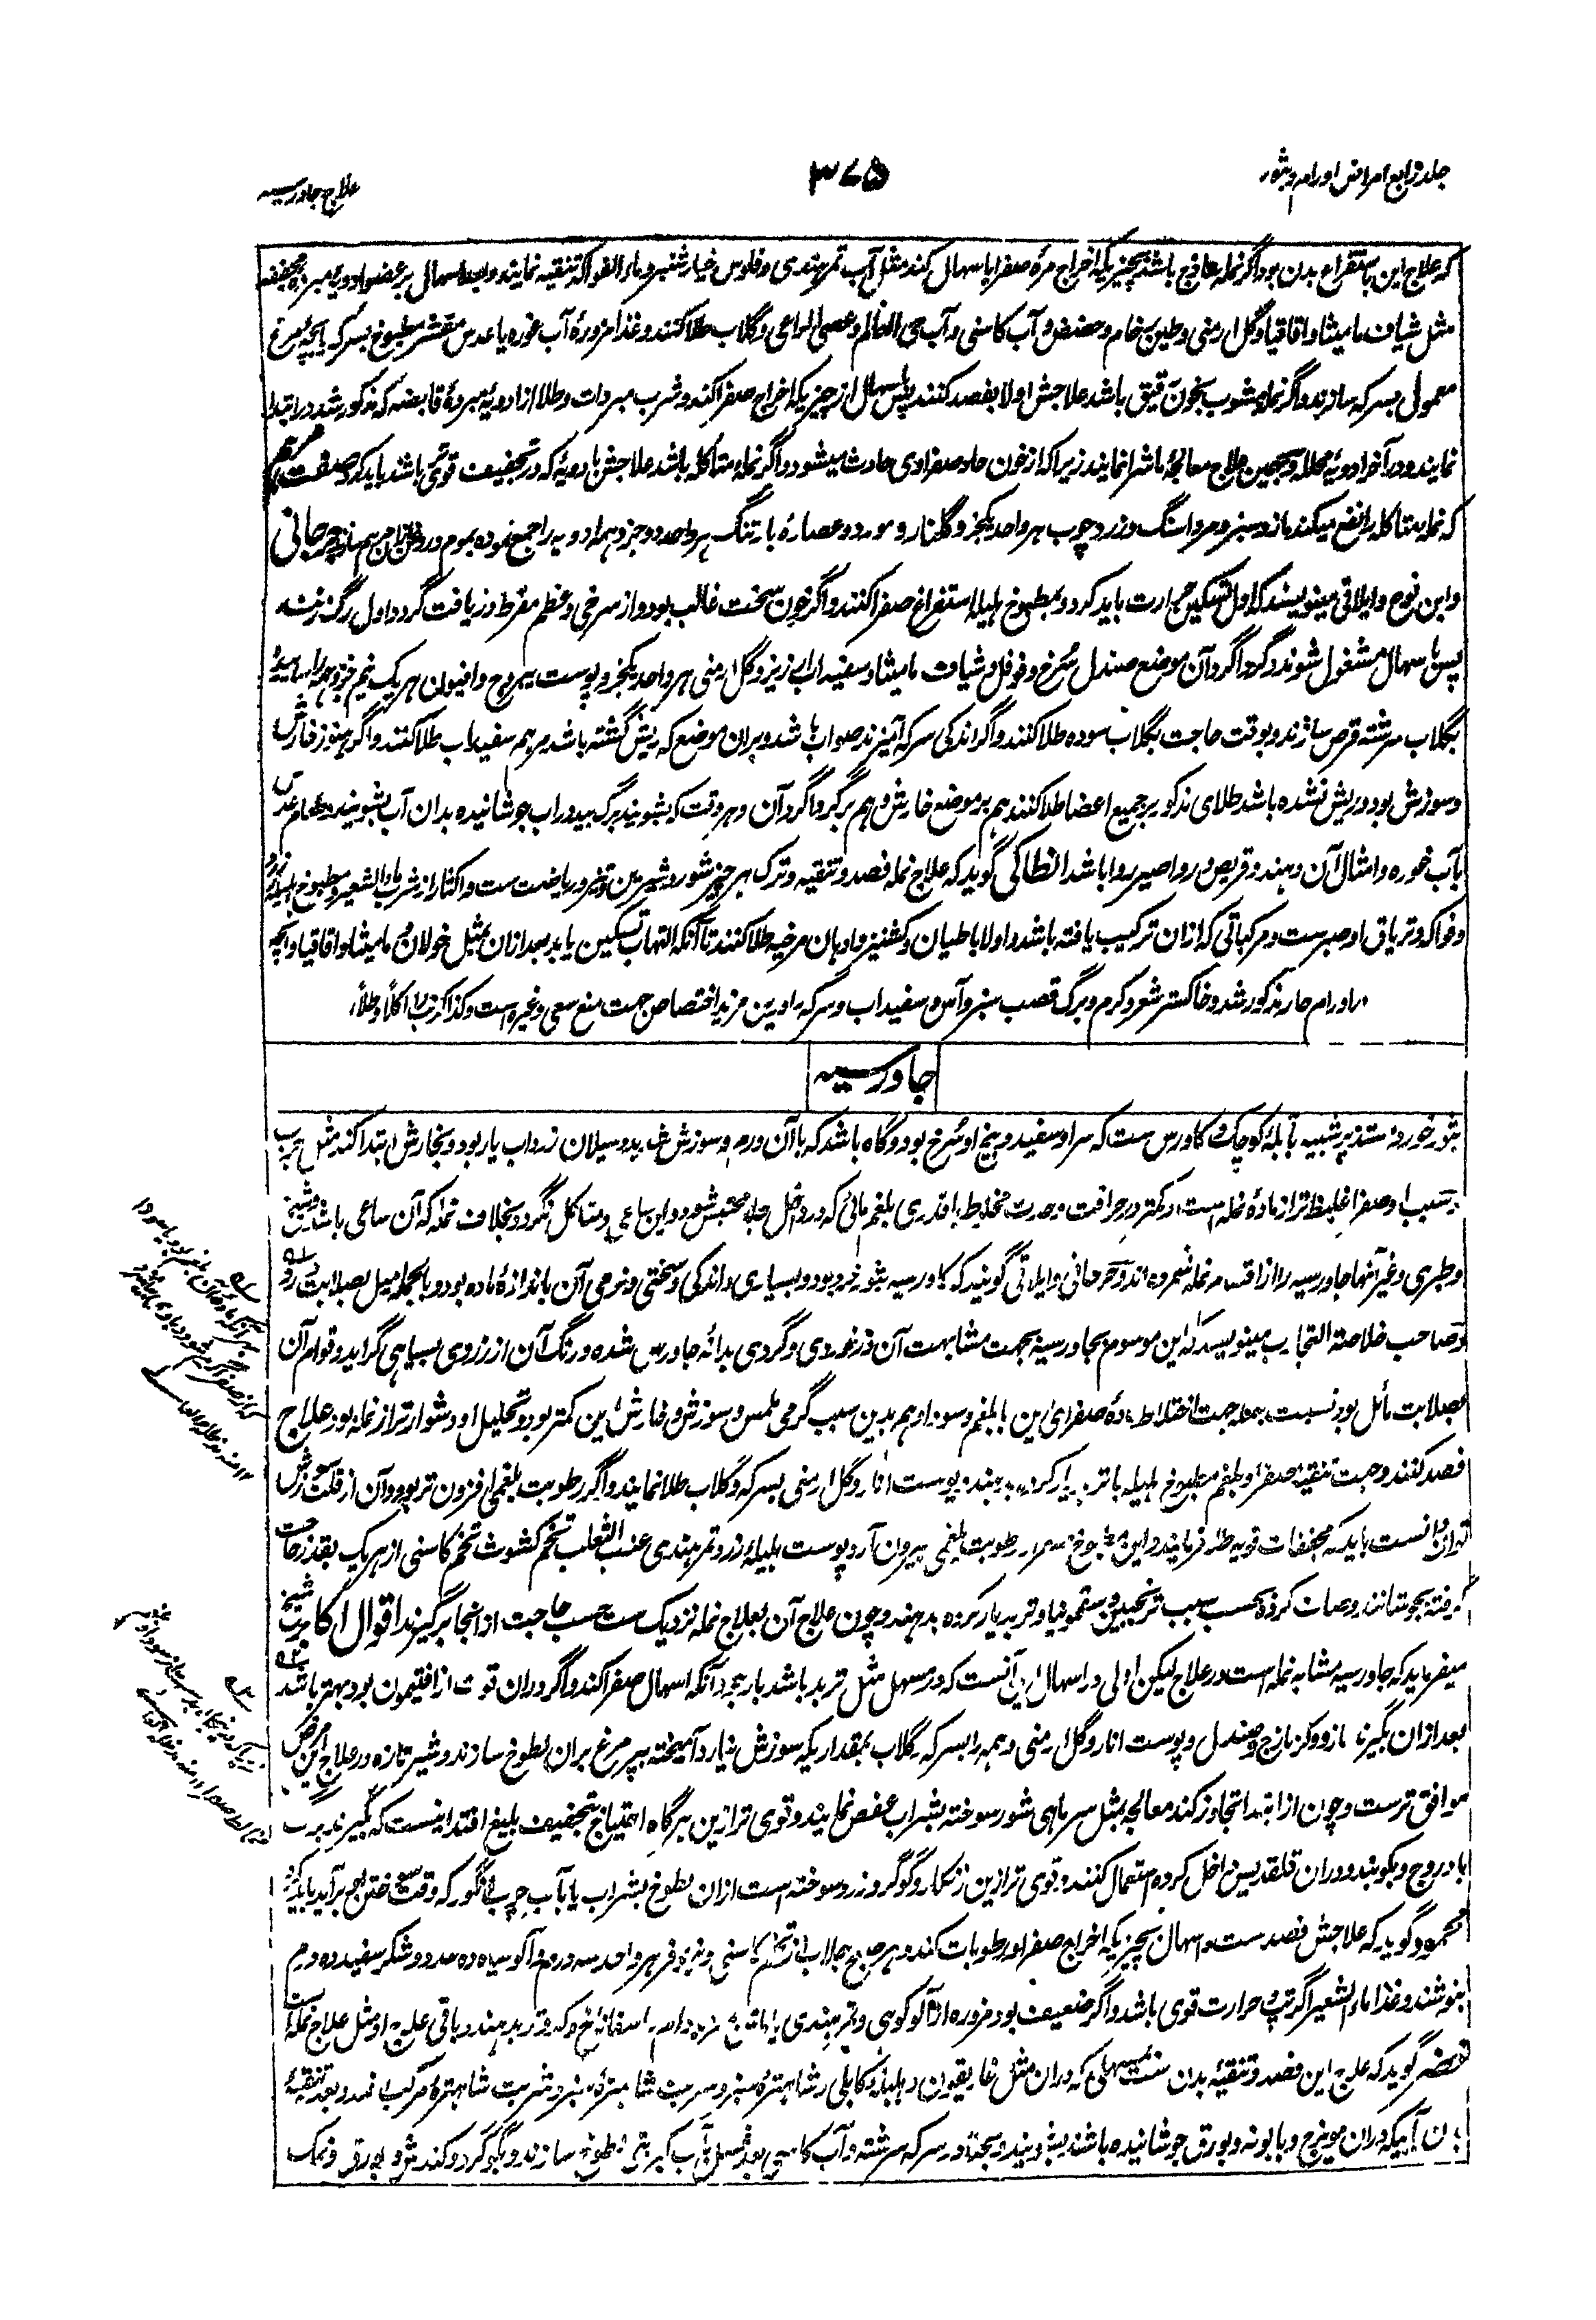 جلد رابع امراض اورام و بثور
۳۷۵
علاج جاورسیه
که علاج این باستفراغ بدن بود اگر نمله ساذج باشد بچیزیکه اخراج مره صفرا باسهال کند مثل آب تمر هندی و فلوس خیارشنبر و ماء الفواکه تنقیه نمایند و بعد اسهال بر عضو ادویه مبرده مجففه
مثل شیاف مامیثا و اقاقیا و گل ارمنی و طین خام و حضض و آب کاسنی و آب حی العالم و عصی الراعی و گلاب طلا کنند و غذا مزوره آب غوره یا عدس مقشر مطبوخ بسرکه یا بچه مرغ
معمولی بسرکه سازند و اگر نمله مشوب بخون رقیق باشد علاجش اولا بفصد کنند پس باسهال از چیزیکه اخراج صفرا کند و شرب مبردات و طلا از ادویه مبرده قابضه که مذکور شد در ابتدا
نمایند و در آخر ادویه محلله و بهمین علاج معالجه ماشرا نمایند زیرا که از خون حاد صفراوی حادث میشود و اگر نمله متاکله باشد علاجش بادویه که در تجفیف قوی باشد باید کرد صفت مرهم
که نمله متاکله را نفع میکند مازو سبز و مرداسنگ و زردچوب هر واحد یکجز و گلنار و مورد و عصاره بارتنگ هر واحد دو جز و همه ادویه را جمع نموده بموم و روغن مرهم سازند جرجانی
و ابن نوح و ایلاقی مینویسند که اول تسکین حرارت باید کرد و بمطبوخ هلیله استفراغ صفرا کنند و اگر خون سخت غالب بود و از سرخی و عظم مفرط دریافت گردد اول رگ زنند
پس باسهال مشغول شوند و گرداگرد آن موضع صندل سرخ و فوفل و شیاف مامیثا و سفیداب ارزیز و گل ارمنی هر واحد یکجز و پوست یبروج و افیون هر یک نیم جزو همه را ساییده
بگلاب سرشته قرص سازند و بوقت حاجت بگلاب سوده طلا کنند و اگر اندکی سرکه آمیزند صواب باشد و بران موضع که ریش گشته باشد مرهم سفیداب طلا کنند و اگر هنوز خارش
و سوزش بود و ریش نشده باشد طلای مذکور بر جمیع اعضا طلا کنند هم بر موضع خارش و هم بر گرداگرد آن و هر وقت که بشویند برگ بید در آب جوشانیده بدان آب بشویند و طعام عدس
بآب غوره و امثال آن دهند و قریص و رواصیر روا باشد انطاکی گوید که علاج نمله فصد و تنقیه و ترک هر چیز شور و شیرین و تند و ریاضت ست و اکثار از شرب ماء الشعیر و مطبوخ هلیله زرد
و فواکه و تریاق او صبرست و مرکباتی که ازان ترکیب یافته باشد و اولا باطیان و کشنیز و ادهان مرخیه طلا کنند تا آنکه التهاب تسکین یابد بعد ازان بمثل خولان و مامیثا و اقاقیا و آنچه
در اورام حار مذکور شد و خاکستر شعر و کرم و برگ قصب سبز و آس و سفیداب و سرکه را درین مزید اختصاص جهت منع سعی و غیره است و کذا کزنب اکلاً و طلاً
جاورسیه
بثور خورد مستدیر شبیه بآبله کوچک و کاورس ست که سر او سفید و بیخ او سرخ بود و گاه باشد که با آن ورم و سوزش شدید و سیلان زرداب یار بود و بخارش ابتدا کند مثل جرب
و سبب او صفرا غلیظ تر از ماده نمله است و کمتر در حرافت و حدت مخلط با قدری بلغم مائی که در داخل جلد محتبس شود و این ساعی و متاکل نگردد بخلاف نمله که آن ساعی باشد و شیخ
و طبری و غیر آنها جاورسیه را از اقسام نمله شمرده اند و جرجانی و ایلاقی گویند که کاورسیه بثور خرد بود و بسیاری و اندکی و سختی و نرمی آن باندازه ماده بود و بالجمله میل بصلابت دارد
و صاحب خلاصة التجارب مینویسد که این موسوم بجاورسیه بجهت مشابهت آن در خردی و گردی بدانه جاورس شده و رنگ آن از زردی بسیاهی گراید و قوام آن
بصلابت مائل بود نسبت بنمله جهت اختلاط ماده صفرای این با بلغم و سودا و هم بدین سبب گرمی ملمس و سوزش و خارش این کمتر بود و تحلیل او دشوارتر از نمله بود علاج
فصد کنند و جهت تنقیه صفرا و بلغم مطبوخ هلیله با تربد یار کرده بدهند و پوست انار و گل ارمنی بسرکه و گلاب طلا نمایند و اگر رطوبت بلغمی افزون تر بود و آن از قلت سوزش
توان دانست باید که مجففات قویه طلا فرمایند و این مطبوخ رطوبت بلغمی بیرون آرد پوست هلیله زرد تمر هندی عنب الثعلب تخم کشوث تخم کاسنی از هر یک بقدر حاجت
گرفته بجوشانند و صاف کرده بحسب سبب ترنجبین و سقمونیا و تربد یار کرده بدهند و چون علاج آن بعلاج نمله نزدیک ست حسب حاجت از انجا برگیرند اقوال اکابر شیخ
میفرماید که جاورسیه مشابه نمله است در علاج لیکن اولی در اسهال این آنست که در مسهل مثل تربد باشد با وجود آنکه اسهال صفرا کند و اگر دران قوت از افتیمون بود بهتر باشد
بعد ازان بگیرند مازو و کزمازج و صندل و پوست انار و گل ارمنی و همه را بسرکه و گلاب بمقداریکه سوزش نیارد آمیخته بپر مرغ بران لطوخ سازند و شیر تازه در علاج این مرض
موافق ترست و چون از ابتدا تجاوز کند معالجه بمثل سر ماهی شور سوخته بشراب عفص نمایند و قوی تر ازین هرگاه احتیاج بتجفیف بلیغ افتد اینست که بگیرند برگ
بادروج و بکوبند و دران قلقدیس داخل کرده استعمال کنند و قوی تر ازین زنگار و گوگرد زرد سوخته است ازان لطوخ بشراب یا بآب چوب انگور که وقت سوختن بر آید باید کرد
محمود گوید که علاجش فصد ست و اسهال بچیزیکه اخراج صفرا و رطوبات کند و هر صبح جلاب از تخم کاسنی و نیلوفر هر واحد سه درم و آلو سیاه ده عدد و شکر سفید ده درم
بنوشند و غذا ماء الشعیر اگر تپ و حرارت قوی باشد و اگر ضعیف بود مزوره از آلو کوهی و تمر هندی یا و باقی علاج او مثل علاج نمله است
خضر گوید که علاج این فصد و تنقیه بدن ست بمسهلی که دران مثل غاریقون و هلیله کابلی و شاهتره سبز و شربت شاهتره مرکب باشد و بعد تنقیه
بدن بآبیکه دران مویزج و بابونه و بورق جوشانیده باشند بشویند و بسرکه سرشته و آب کاسنی بعد غسل بآب کبریتی لطوخ سازند و بگوگرد و کندش و بورق و نمک